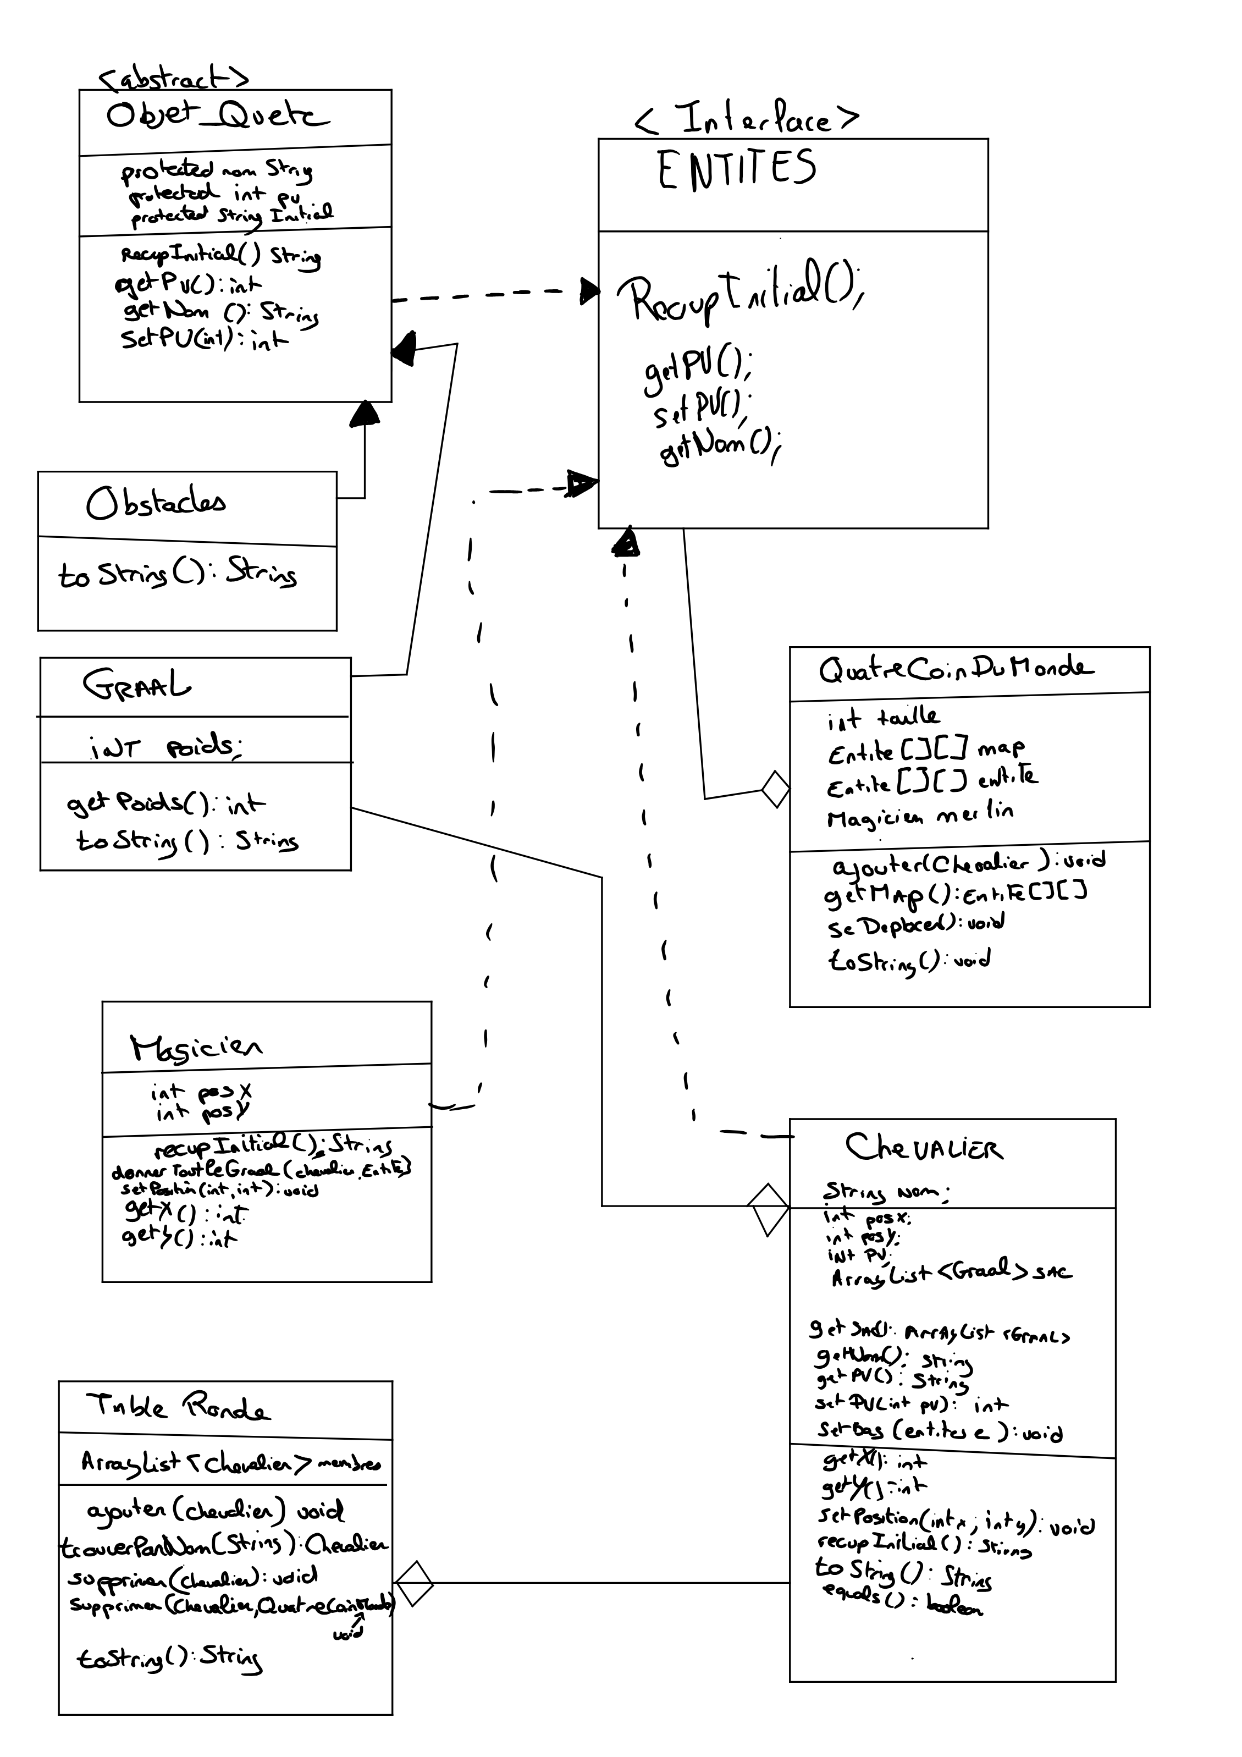 <abstract>
Objet_Quete
protected nom String
protected int pv
protected String Initial
RecupInitial() String
getPV(): int
getNom (): String
SetPV(int): int
< Interface >
ENTITES
RecupInitial();
getPV();
setPV();
getNom();
Obstacles
toString(): String
GRAAL
iNT poids;
getPoids(): int
toString() : String
QuatreCoinDuMonde
int taille
Entite [][] map
Entite [][] entite
Magicien merlin
ajouter(Chevalier ): void
getMap(): Entite[][]
seDeplacer(): void
toString(): void
Magicien
int posX
int posY
recupInitial(): String
donnerToutLeGraal(chevalier, Entite)
setPosition(int, int): void
getX() : int
getY() : int
CHEVALIER
String Nom;
int posX;
int posY;
iNt PV;
ArrayList <Graal> sac
getSac(): ArrayList <Graal>
getNom(): String
getPV() : String
setPV(int pv): int
setBag (entites e ): void
getX(): int
getY(): int
setPosition(int x, int y): void
recupInitial() : String
toString() : String
equals() : boolean
Table Ronde
ArrayList <Chevalier> membres
ajouter(chevalier) void
trouverParNom(String): Chevalier
supprimer(chevalier): void
supprimer(Chevalier, QuatreCoinMonde)
void
toString(): String